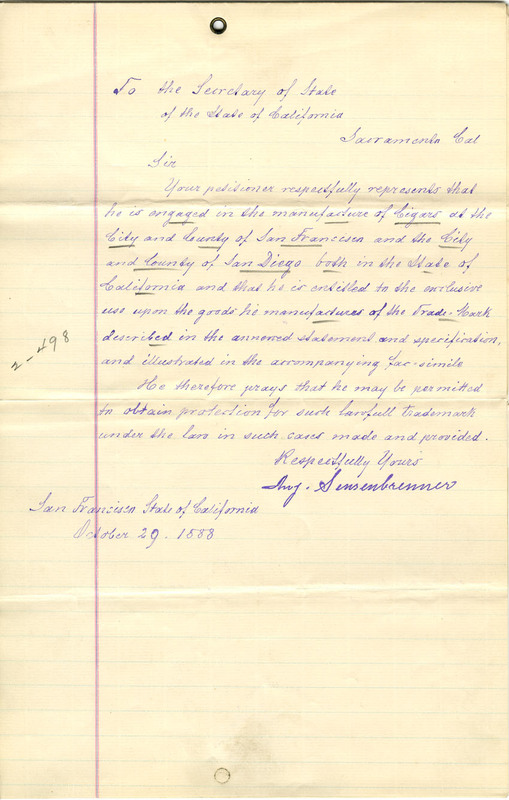 To the Secretary of State
of the State of California
Sacramento Cal
Sir
Your petitioner respectfully represents that
he is engaged in the manufacture of Cigars at the
City and County of San Francisco and the City
and County of San Diego both in the State of
California and that he is entitled to the exclusive
use upon the goods he manufactures of the Trade-Mark
described in the annexed statement and specification,
and illustrated in the accompanying fac-simile
He therefore prays that he may be permitted
to obtain protection for such lawfull trademark
under the law in such cases made and provided.
Respectfully Yours
Aug. Sensenbrenner
San Francisco State of California
October 29. 1888
2-498